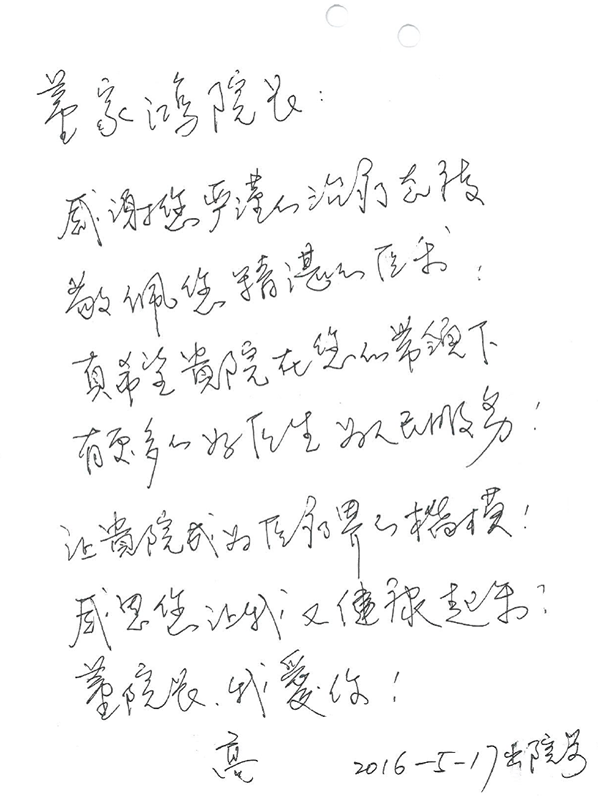 董家鸿院长：
感谢您严谨的治疗态度
敬佩您精湛的医术！
真希望貴院在您的带领下
有更多的好医生为人民服务！
让貴院成为医疗界的楷模！
感恩您让我又健康起来！
董院长、我愛你！
亮
2016-5-17出院